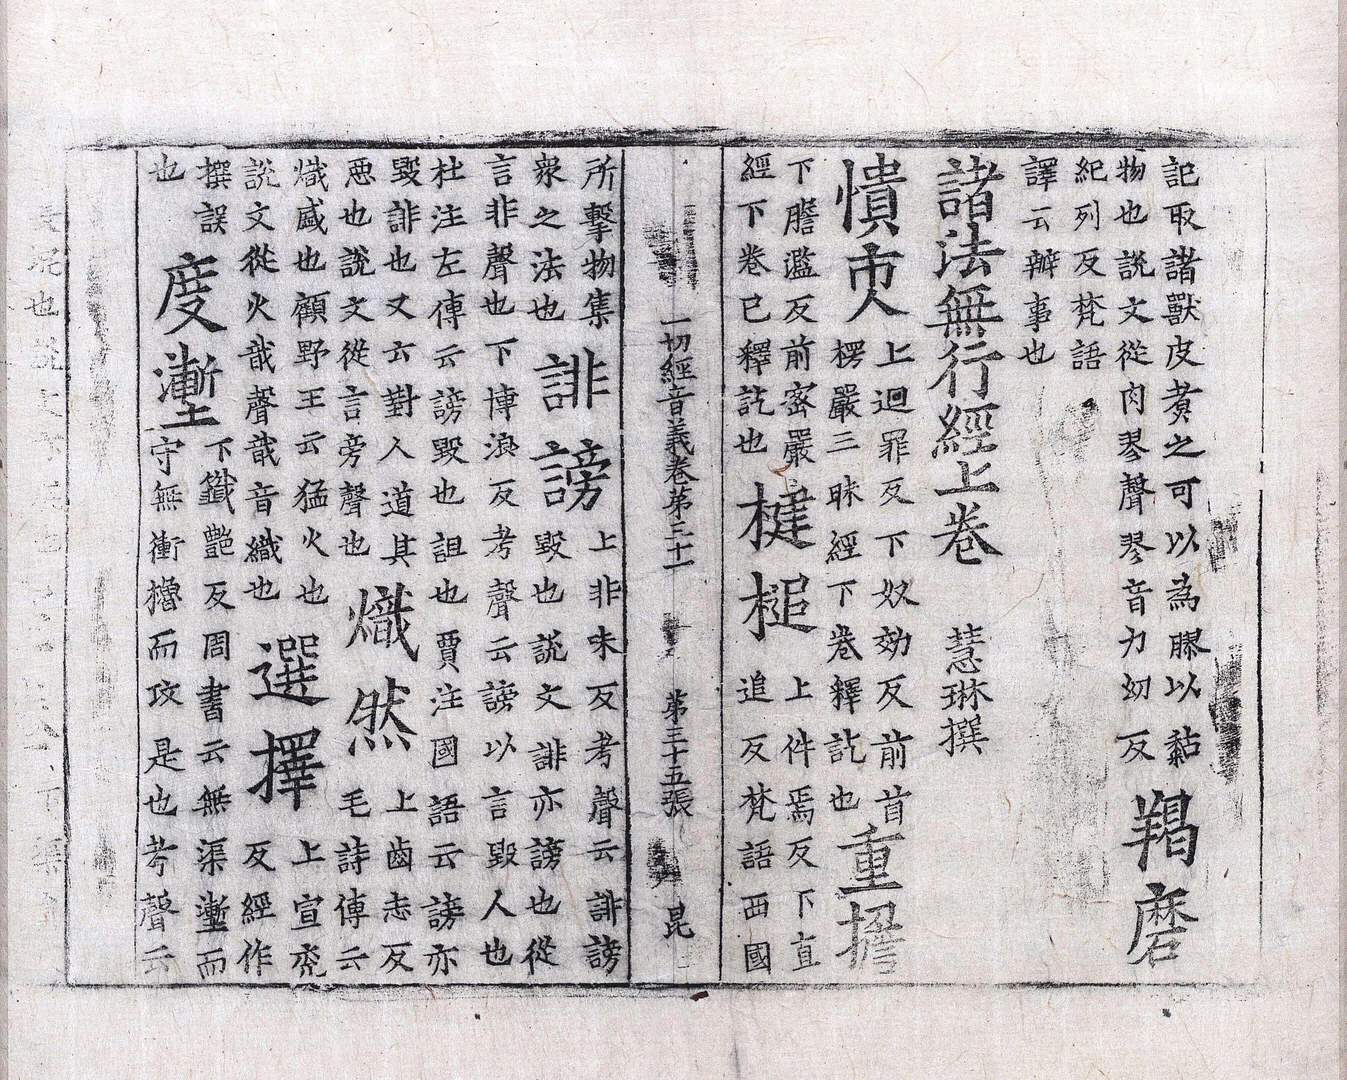 記取諸獸皮煑之可以為膠以黏
物也說文從肉翏聲翏音力幼反
羯磨
紀列反梵語
譯云辦事也
諸法無行經上卷　慧琳撰
憒㕻
上迴罪反下奴効反前首
楞嚴三昧經下卷釋訖也
重擔
下膽濫反前密嚴
經下卷已釋訖也
楗槌
上件焉反下直
追反梵語西國
一切經音義卷第三十一　第三十五張　昆
所擊物集
衆之法也
誹謗
上非味反考聲云誹謗
毀也說文誹亦謗也從
言非聲也下博浪反考聲云謗以言毀人也
杜注左傳云謗毀也詛也賈注國語云謗亦
毀誹也又云對人道其
惡也說文從言旁聲也
熾然
上齒志反
毛詩傳云
熾盛也顧野王云猛火也
說文從火戠聲戠音織也
選擇
上宣兖
反經作
撰誤
也
度塹
下籤艷反周書云無渠塹而
守無衝櫓而攻是也考聲云